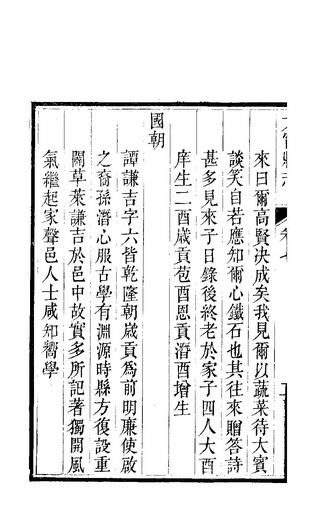 來曰爾高賢決成矣我見爾以蔬菜待大賓
談笑自若應知爾心鐵石也其往來贈答詩
甚多見來子日錄後終老於家子四人大酉
庠生二酉歲貢苞酉恩貢潛酉增生
國朝
譚謙吉字六皆乾隆朝歲貢為前明廉使啟
之裔孫潛心服古學有淵源時縣方復設重
闢草萊謙吉於邑中故實多所記著獨開風
氣繼起家聲邑人士咸知嚮學